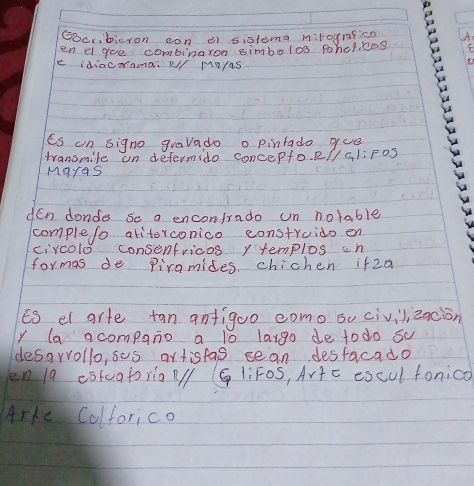 Escribieron con el sistema mitografico
en el que combinaron simbolos foneticos
e idiocrama: R// Mayas
Es un signo gravado o pintado que
transmite un determido concepto. R// Glifos
Mayas
¿En donde se a encontrado un notable
complejo aritorconico construido en
circolo consentricos y templos en
formas de Piramides. chichen itza
Es el arte tan antiguo como su civilización
y la acompaño a lo largo de todo su
desarrollo, sus artistas se an destacado
en la estuatoria R// Glifos, Arte escultonico
Arte Coltorico